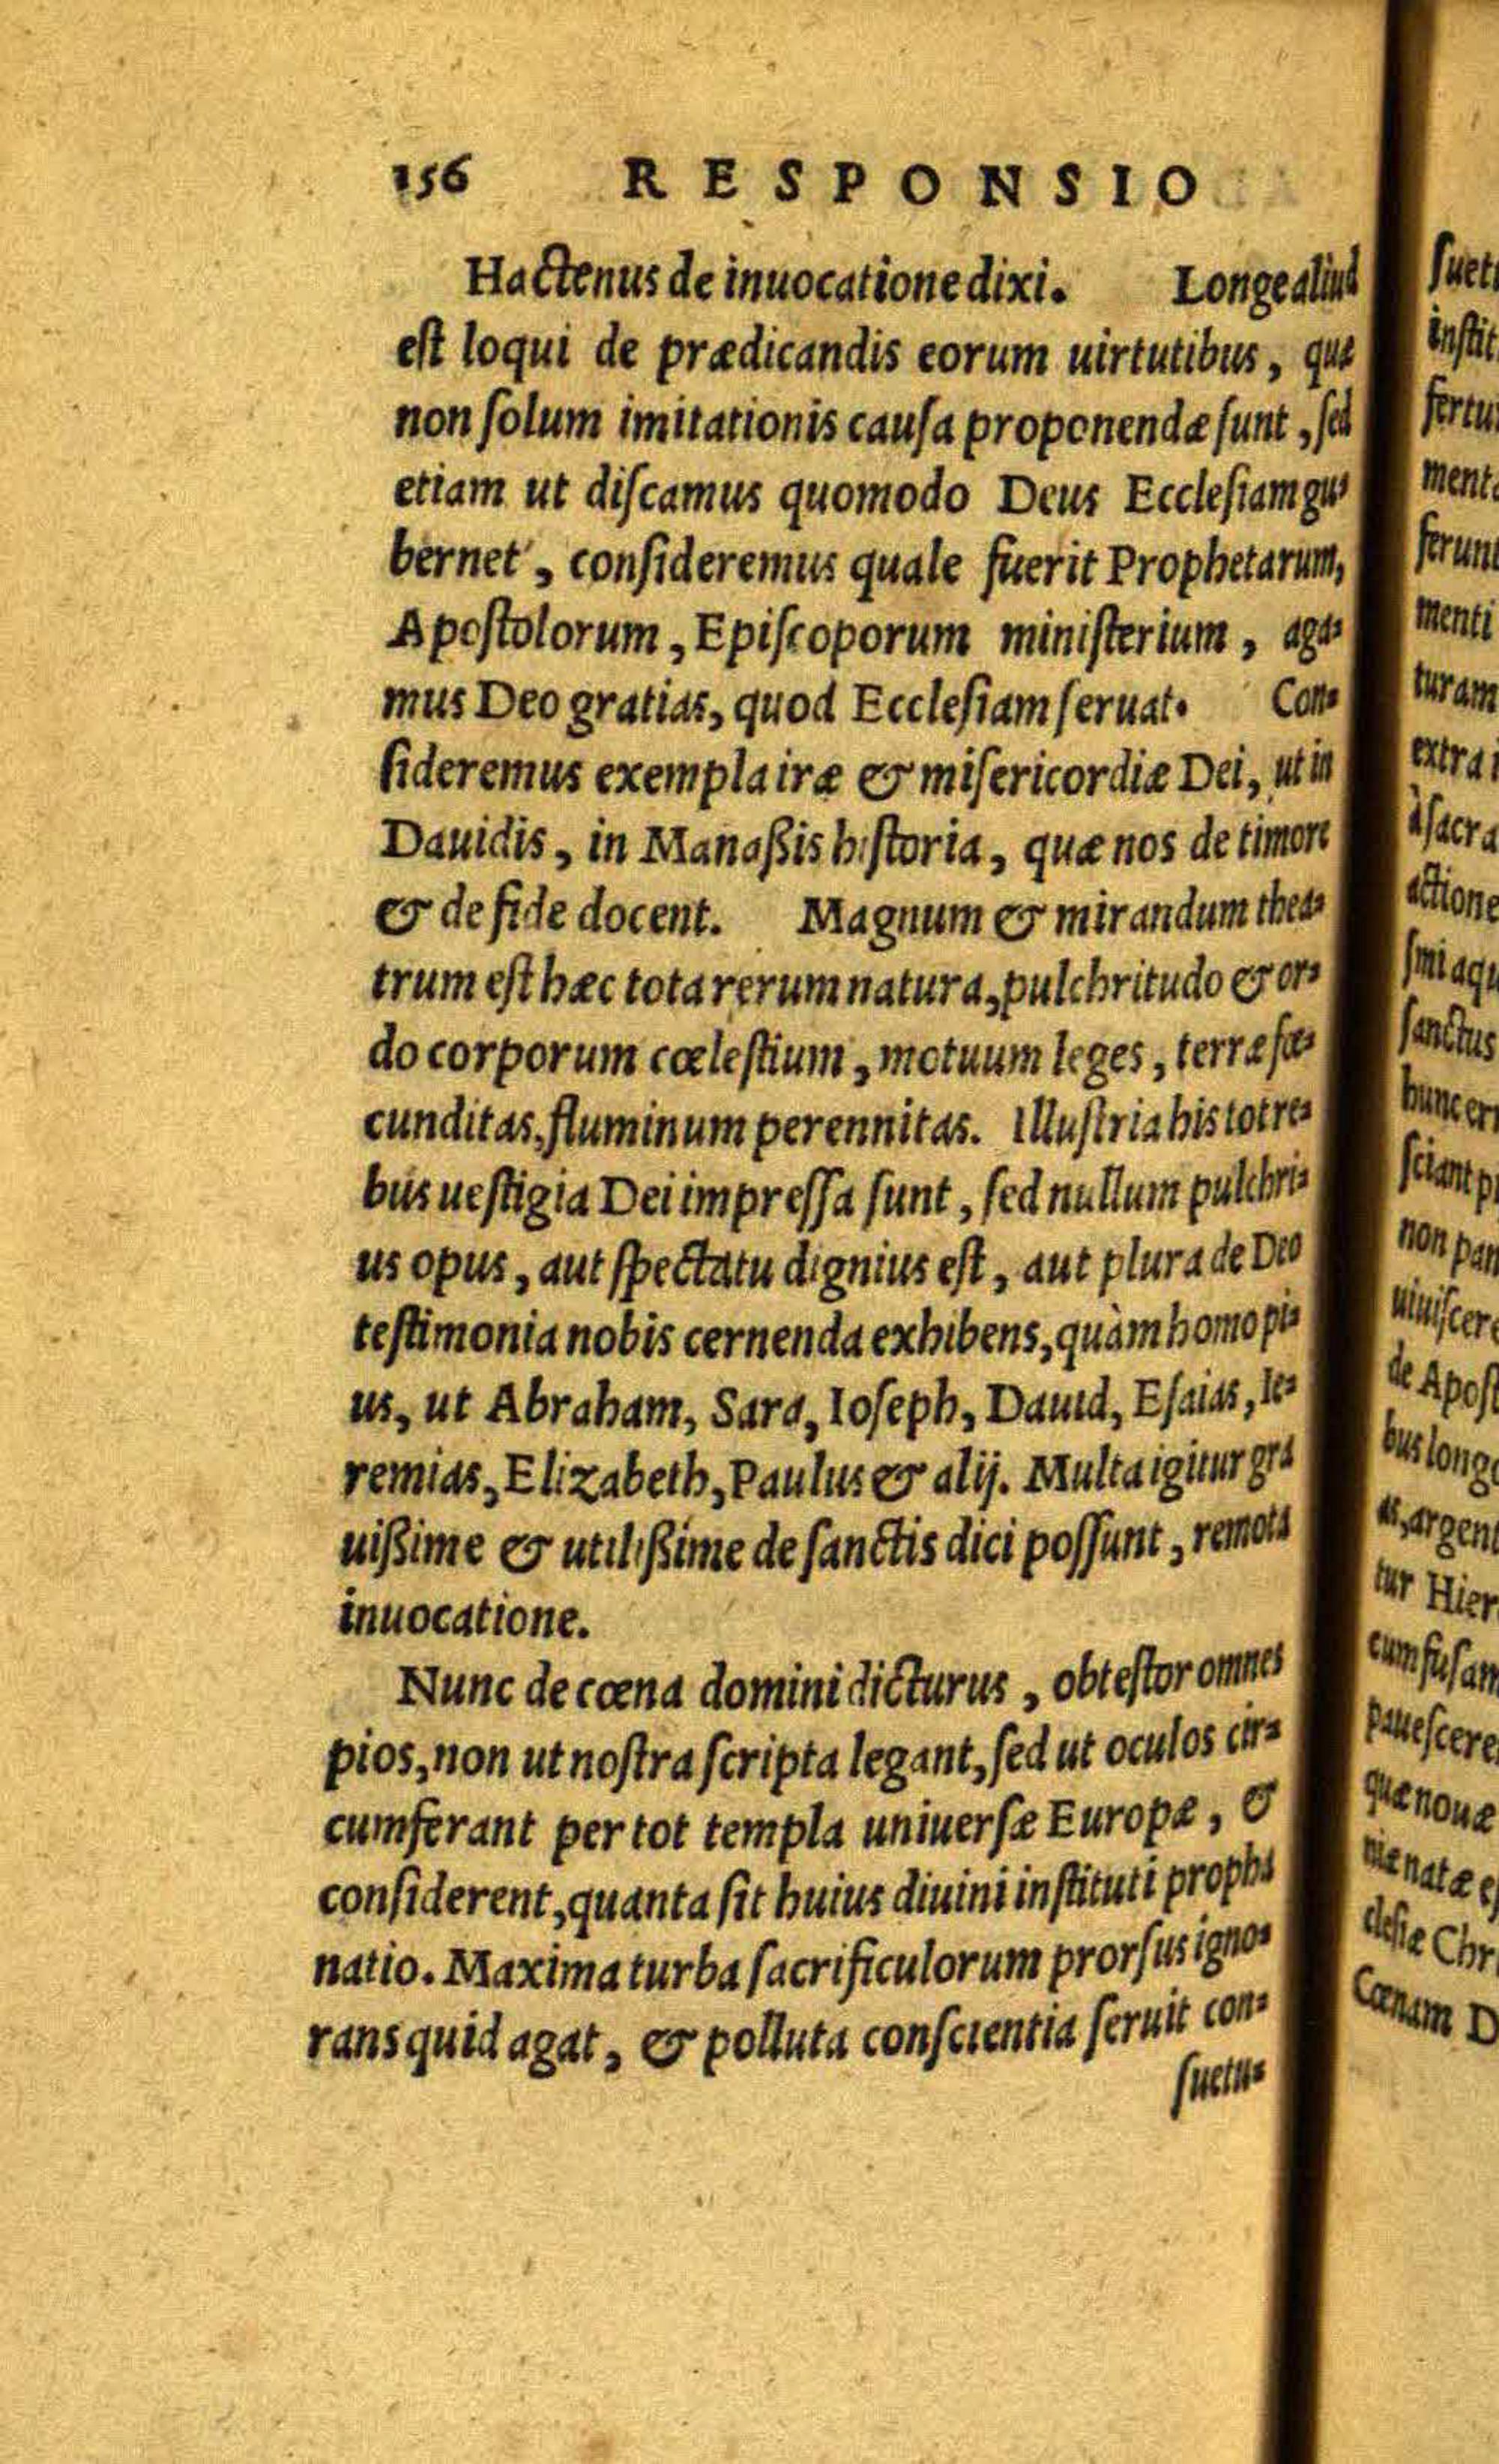 156 RESPONSIO
Hactenus de inuocatione dixi. Longe aliud
est loqui de prædicandis eorum uirtutibus, quæ
non ſolum imitationis cauſa proponendæ ſunt, ſed
etiam ut diſcamus quomodo Deus Eccleſiam gu⸗
bernet, conſideremus quale fuerit Prophetarum,
Apoſtolorum, Epiſcoporum miniſterium, aga⸗
mus Deo gratias, quod Eccleſiam ſeruat. Con⸗
ſideremus exempla iræ & miſericordiæ Dei, ut in
Dauidis, in Manaßis hiſtoria, quæ nos de timore
& de fide docent. Magnum & mirandum thea⸗
trum eſt hæc tota rerum natura, pulchritudo & or⸗
do corporum cœleſtium, motuum leges, terræ fœ⸗
cunditas, fluminum perennitas. Illuſtria his tot re⸗
bus ueſtigia Dei impreſſa ſunt, ſed nullum pulchri⸗
us opus, aut ſpectatu dignius eſt, aut plura de Deo
teſtimonia nobis cernenda exhibens, quàm homo pi⸗
us, ut Abraham, Sara, Ioſeph, Dauid, Eſaias, Ie⸗
remias, Elizabeth, Paulus & alij. Multa igitur gra
uißime & utilißime de ſanctis dici poſſunt, remota
inuocatione.
Nunc de cœna domini dicturus, obteſtor omnes
pios, non ut noſtra ſcripta legant, ſed ut oculos cir⸗
cumferant per tot templa uniuerſæ Europæ, &
conſiderent, quanta ſit huius diuini inſtituti propha
natio. Maxima turba ſacrificulorum prorſus igno⸗
rans quid agat, & polluta conſcientia ſeruit con⸗
ſuetu⸗
inſtit
fertu
menti
turam
extra
à ſacra
actione
ſanctus
ſciant
non
de Apoſt
bus longe
argent
tur Hier
paueſcere
quæ nouæ
cleſiæ Chr
Cœnam D